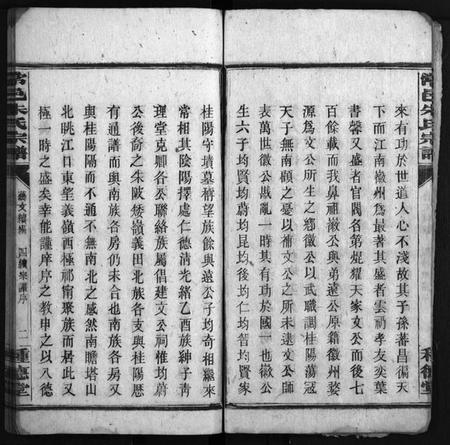 常邑朱氏宗譜
來有功於世道人心不淺故其子孫蕃昌徧天
下而江南徽州爲最著其盛者雲初孝友奕葉
書馨又盛者官閥名第焜燿天家文公而後七
百餘載而我鼻祖徽公與弟遠公原籍徽州婺
源爲文公所生之鄕徽公以武職調桂陽蕩寇
天子無南顧之憂以補文公之所未逮文公師
表萬世徽公戡亂一時其有功於國一也徽公
生六子均賢均蔚均昆均後均仁均晋均賢家
桂陽守墳墓楕望族餘與遠公子均奇相繼來
常相其陰陽擇處仁德清光緒乙酉族紳子青
理堂克卿各公聯絡族屬倡建文公祠惟均蔚
公後奇之朱歐矮嶺義田北族各支與桂陽歷
有通譜而與南族各房仍未合也南族各房又
與桂陽陽而不通不無南北之感然南瞻塔山
北眺江口東望義嶺西極祁甯聚族而居此又
極一時之盛矣幸能謹庠序之教申之以八德
常邑朱氏宗譜
藝文續集
四續宗譜序
二
種德堂